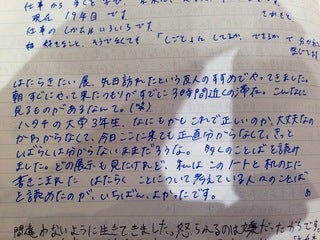 仕事から多くを学び、
現在19年目です
仕事のしかたはいろいろです。
好きなこと、そうでなくても「しごと」にしてるか、できるか で分か
感じてます
はたらきたい展 先日訪れたという友人のすすめでやってきました。
朝すぐにやってきたつもりがすでに3時間近くの滞在。こんなに
見るものがあるなんて。(笑)
ハタチの大学3年生、なにもかもこれで正しいのか、大丈夫なの
かわからなくて、今日ここに来ても正直分からなしで、きっと
しばらくは分からないままだろうな。多くのことばを読け
ました。どの展示も見たけれど、私はこのノートと机の上に
書きこまれた はたらくことについて考えている人々のことば
を読めたのが、いちばん、よかったです。
間違わないように生きてきました。怒られるのは嫌だからです。